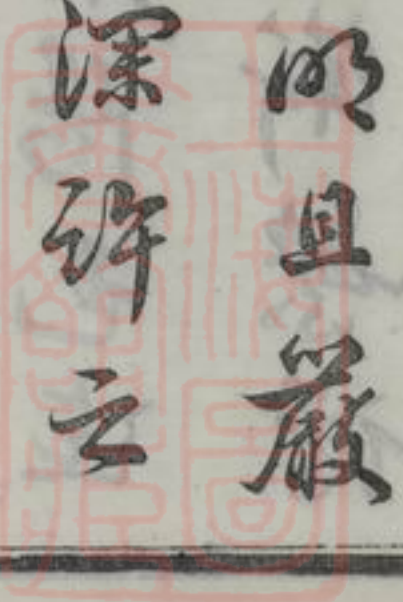 明且嚴
深許云